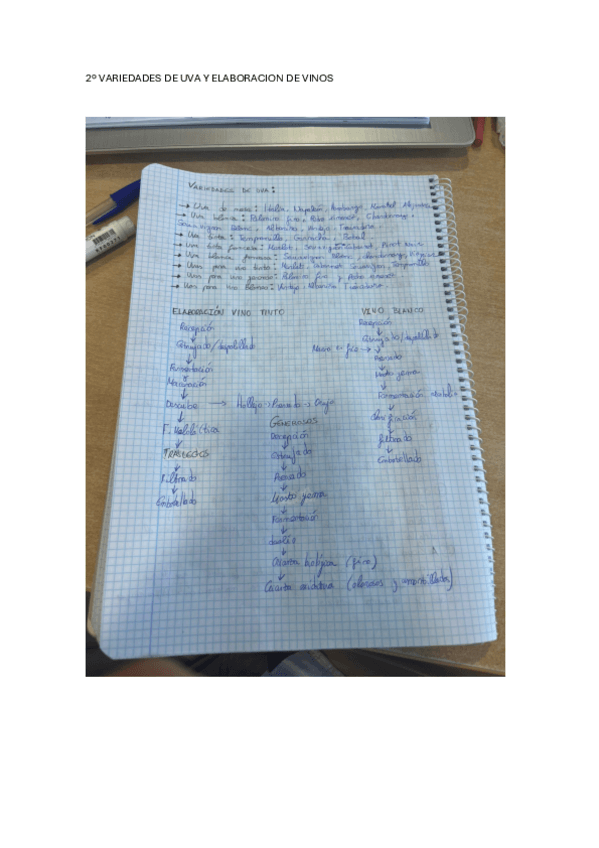 2º VARIEDADES DE UVA Y ELABORACION DE VINOS
VARIEDADES DE UVA:
→ Uva de mesa: Italia, Napoleón,
→ Uva blanca: Palomino fino, Pedro Ximenez, Chardonnay,
Sauvignon Blanc, Albariño, Verdejo, Treixadura
→ Uva tinta: Tempranillo, Garnacha, Bobal
→ Uva tinta francesa: Merlot, Sauvignon Cabernet, Pinot Noir
→ Uva blanca francesa: Sauvignon Blanc, Chardonnay,
→ Uvas para vino tinto: Merlot, Cabernet Sauvignon, Tempranillo
→ Uvas para vino generoso: Palomino fino y Pedro Ximenez
→ Uvas para vino Blanco: Verdejo, Albariño Treixadura
ELABORACIÓN VINO TINTO
Recepción
↓
Estrujado/despalillado
↓
Fermentación
↓
Maceración
↓
Descube → Hollejo → Prensado → Orujo
↓
F. Maloláctica
↓
TRASIEGOS
↓
Filtrado
↓
Embotellado
VINO BLANCO
Recepción
↓
Estrujado/despalillado
→ Prensado
↓
Mosto yema
↓
Fermentación
↓
Clarificación
↓
filtrado
↓
Embotellado
GENEROSOS
Recepción
↓
Estrujado
↓
Prensado
↓
Mosto yema
↓
Fermentación
↓
↓
Crianza biológica (fino)
↓
Crianza oxidativa (olorosos y amontillados)